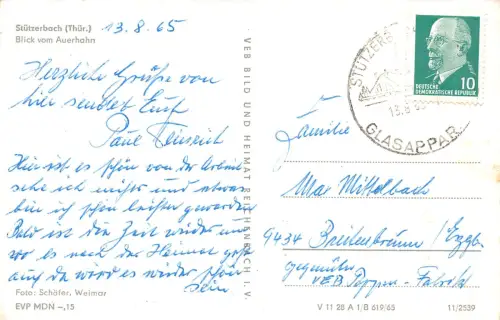 Stützerbach (Thür.) 13.8.65
Blick vom Auerhahn
Herzliche Grüße von
hier sendet Euch
Paul
Hier ist es schön von der Arbeit
sehe ich nichts und etwas
bin ich schon leichter geworden
Bald ist die Zeit wieder um
wo es nach der Heimat geht
auch da wird es wieder schön
sein
Foto: Schäfer, Weimar
EVP MDN –,15
VEB BILD UND HEIMAT REICHENBACH I. V.
STÜTZERB
13.8.65
GLASAPPAR
10
DEUTSCHE
DEMOKRATISCHE REPUBLIK
Familie
Max Mittelbach
9434 Breitenbrunn / Erzgb
gegenüber
VEB Pappen-Fabrik
V 11 28 A 1/B 619/65 11/2539